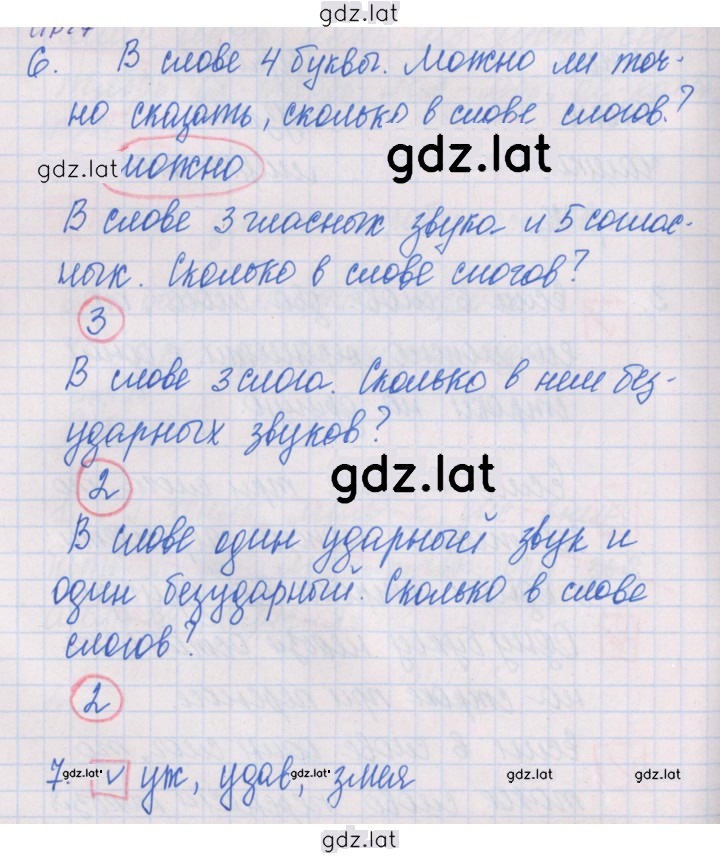 gdz.lat
6. В слове 4 буквы. Можно ли точ-
но сказать, сколько в слове слогов?
gdz.lat можно gdz.lat
В слове 3 гласных звука и 5 соглас-
ных. Сколько в слове слогов?
3
В слове 3 слога. Сколько в нем без-
ударных звуков?
2 gdz.lat
В слове один ударный звук и
один безударный. Сколько в слове
слогов?
2
7. gdz.lat v уж, удав, gdz.lat змея gdz.lat gdz.lat
gdz.lat